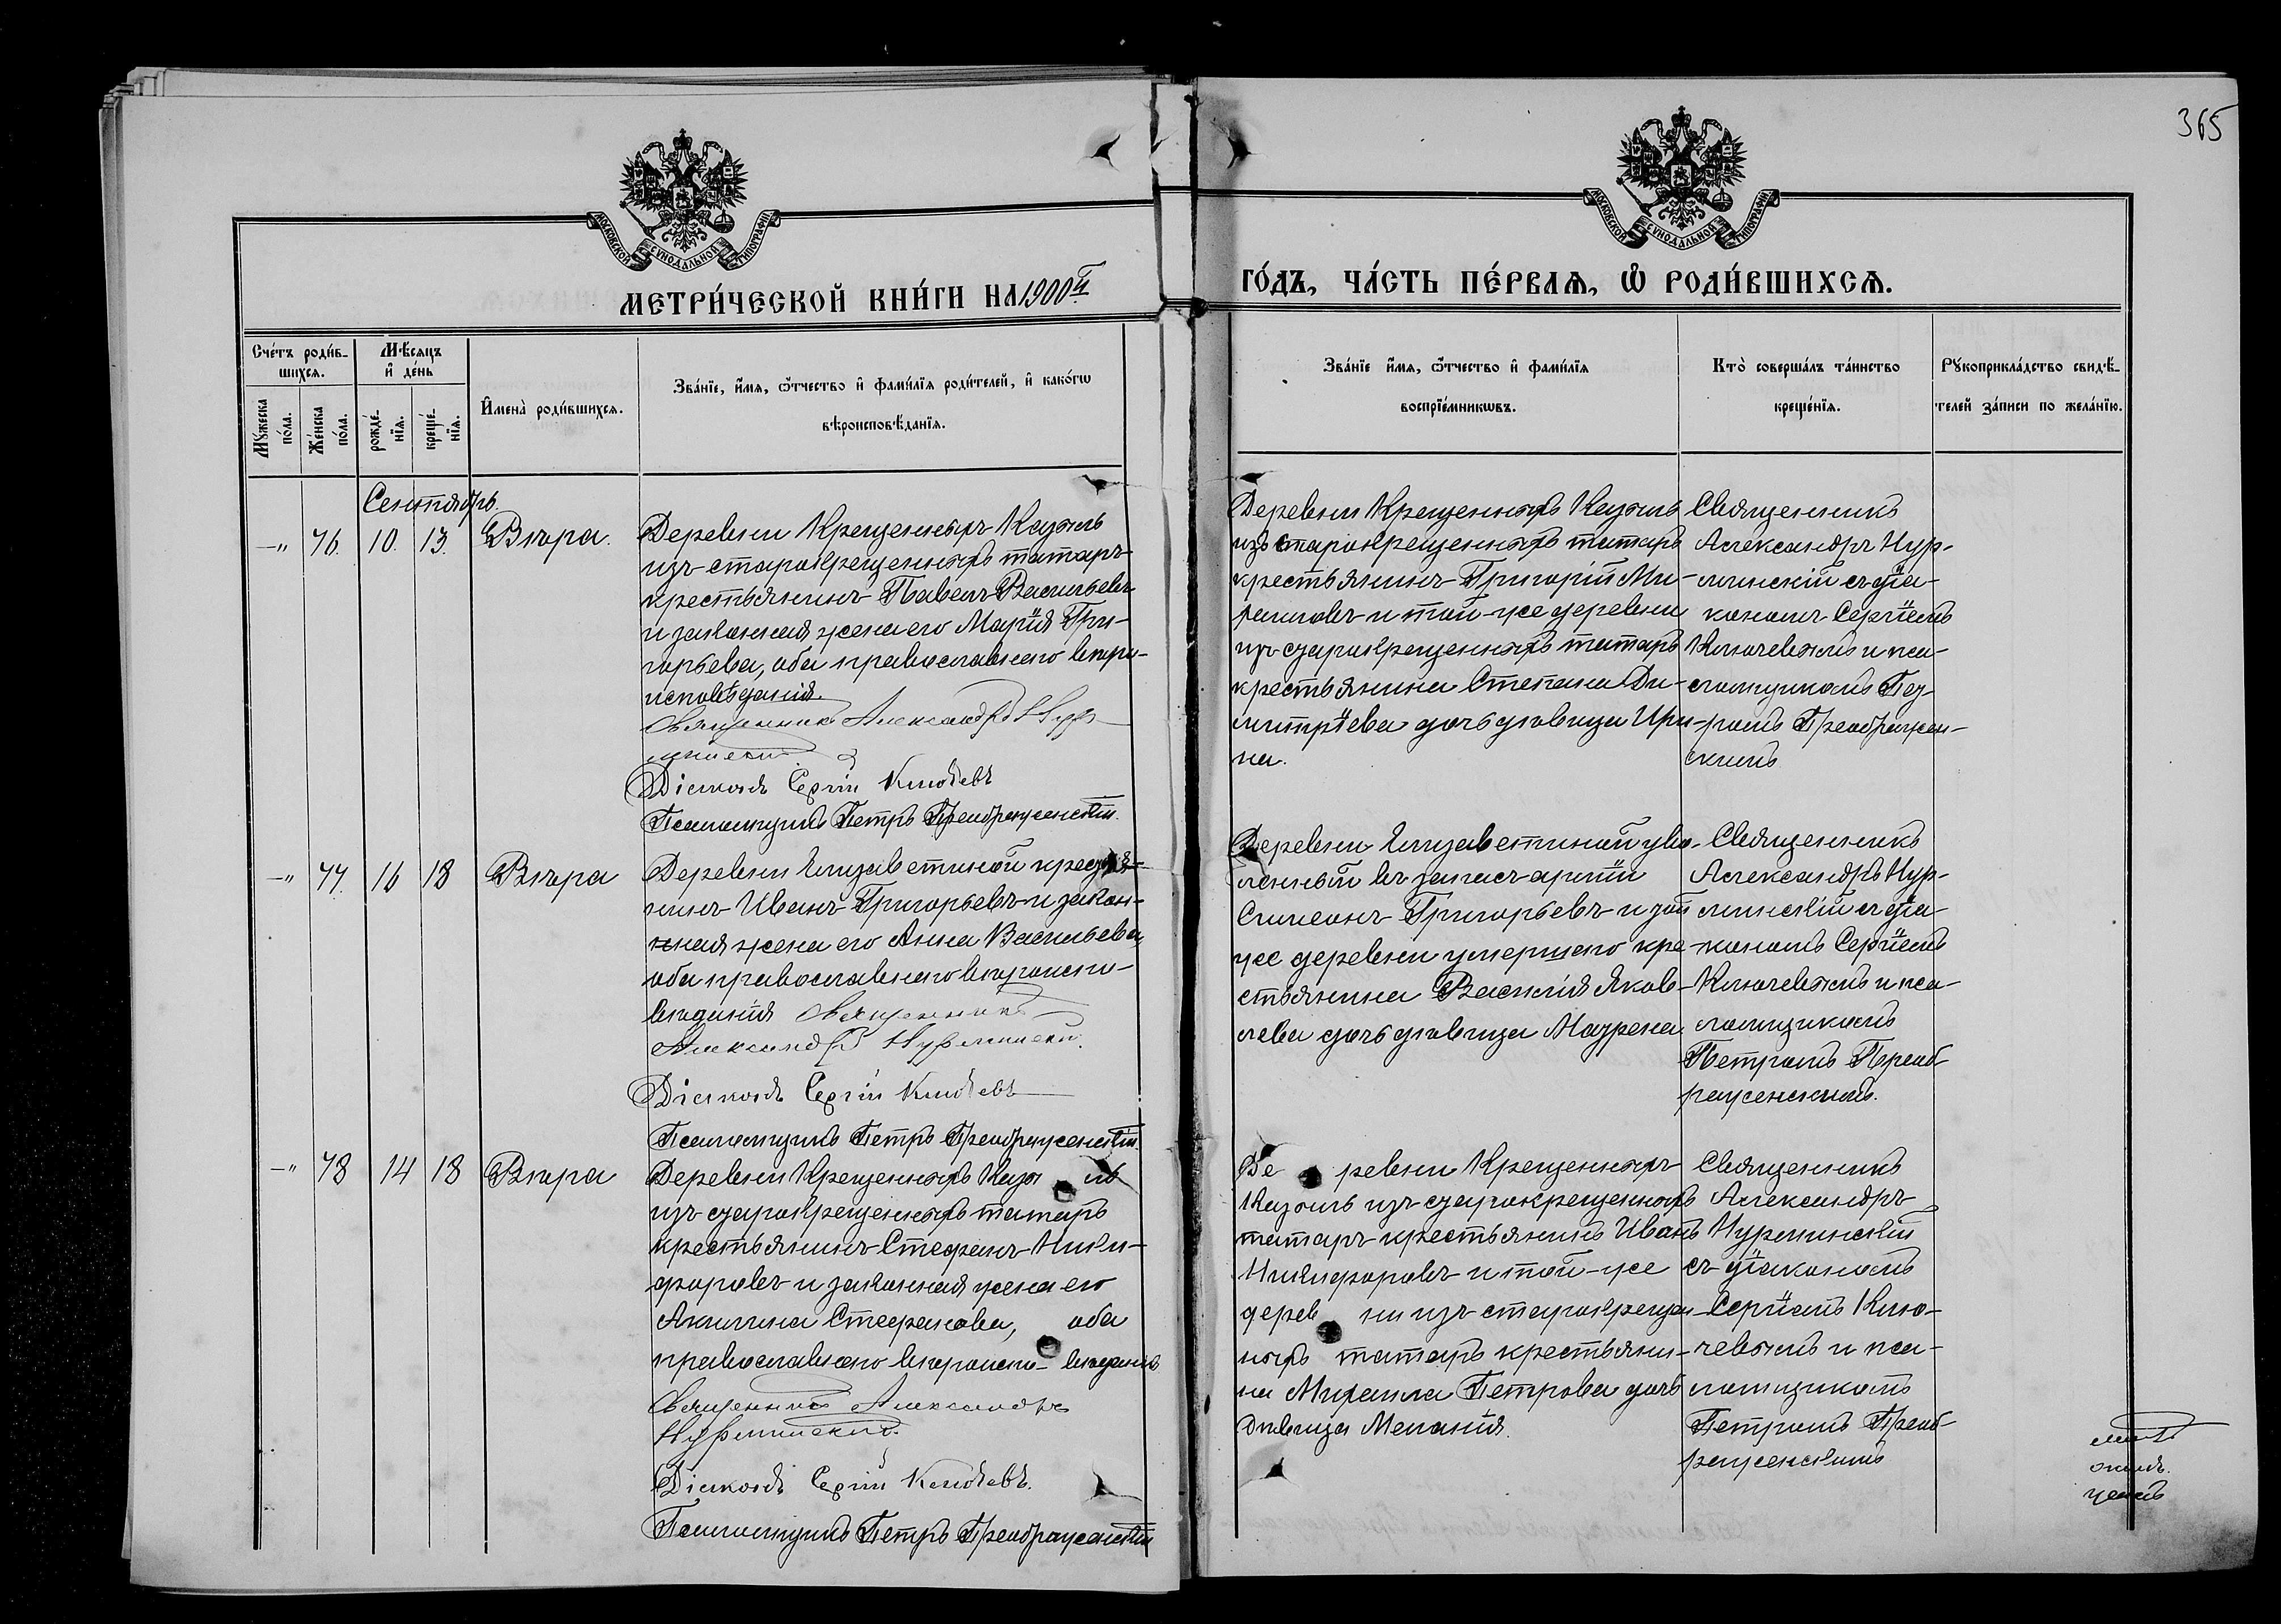 365
МОСКОВСКОЙ СѴНОДАЛЬНОЙ ТИПОГРАФІИ
МОСКОВСКОЙ СѴНОДАЛЬНОЙ ТИПОГРАФІИ
МЕТРИ́ЧЕСКОЙ КНИ́ГИ НА 1900й
ГО́ДЪ, ЧА́СТЬ ПЕ́РВАѦ, Ѽ РОДИ́ВШИХСѦ.
Сче́тъ роди́в-
шихсѧ.
Мꙋжеска
по́ла.
Же́нска
по́ла.
Мѣ́сѧцъ
и҆ де́нь
рожде́-
нїѧ.
креще́-
нїѧ.
И҆мена̀ роди́вшихсѧ.
Зва́нїе, и҆́мѧ, ѻ҆́тчество и҆ фами́лїѧ роди́телей, и҆ како́гѡ
вѣроисповѣ́данїѧ.
Зва́нїе и҆́мѧ, ѻ҆́тчество и҆ фами́лїѧ
воспрїе́мникѡвъ.
Кто̀ соверша́лъ та́инство
креще́нїѧ.
Рꙋкоприкла́дство свидѣ́-
телей за́писи по жела́нїю.
Сентябрь.
—„ 76. 10. 13. Вѣра.
Деревни Крещенныхъ Казыль
изъ старокрещенныхъ татаръ
крестьянинъ Павелъ Васильевъ
и законная жена его Марія Гри-
горьева, оба православного вѣро-
исповѣданія.
Священникъ Александръ Нур-
минскій
Діаконъ Сергій Ключевъ
Псаломщикъ Петръ Преображенскій.
Деревни Крещенныхъ Казыль
изъ старокрещенныхъ татаръ
крестьянинъ Григорій Ми-
и той-же деревни
изъ старокрещенныхъ татаръ
крестьянина Степана Ди-
митріева дочь дѣвица Ири-
на.
Священникъ
Александръ Нур-
минскій съ діа-
кономъ Сергіемъ
Ключевымъ и пса-
ломщикомъ Пет-
ромъ Преображен-
скимъ
—„ 77. 16 18 Вѣра
Деревни Елизаветиной крестья-
нинъ Иванъ Григорьевъ и закон-
ная жена его Анна Васильева,
оба православного вѣроиспо-
вѣданія Священникъ
Александръ Нурминскій.
Діаконъ Сергій Ключевъ
Псаломщикъ Петръ Преображенскій.
Деревни Елизаветиной уво-
ленный въ запасъ арміи
Симеонъ Григорьевъ и той
же деревни умершаго кре-
стьянина Василія Яков-
лева дочь дѣвица Маѵрена
Священникъ
Александръ Нур-
минскій съ діа-
кономъ Сергіемъ
Ключевымъ и пса-
ломщикомъ
Петромъ Преоб-
раженскимъ.
—„ 78 14 18 Вѣра
Деревни Крещенныхъ Казыль
изъ старокрещенныхъ татаръ
крестьянинъ Стефанъ Ники-
форовъ и законная жена его
Акилина Стефанова, оба
православного вѣроиспо-вѣданія
Священникъ Александръ
Нурминскій.
Діаконъ Сергій Ключевъ.
Псаломщикъ Петръ Преображенскій
Де ревни Крещенныхъ
Казыль изъ старокрещенныхъ
татаръ крестьянинъ Иванъ
Никифоровъ и той-же
дерев ни изъ старокрещен-
ныхъ татаръ крестьяни-
на Михаила Петрова дочь
дѣвица Меланія.
Священникъ
Александръ
Нурминскій
съ діакономъ
Сергіемъ Клю-
чевымъ и пса-
ломщикомъ
Петромъ Преоб-
раженскимъ